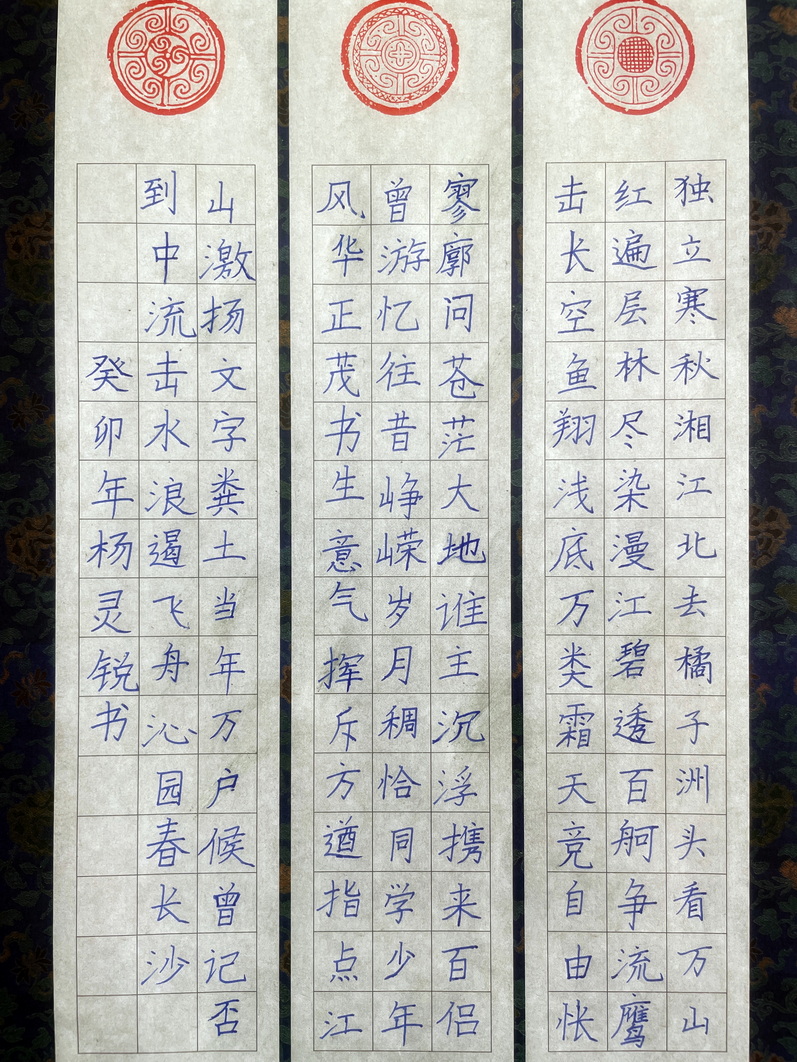 独立寒秋湘江北去橘子洲头看万山
红遍层林尽染漫江碧透百舸争流鹰
击长空鱼翔浅底万类霜天竞自由怅
寥廓问苍茫大地谁主沉浮携来百侣
曾游忆往昔峥嵘岁月稠恰同学少年
风华正茂书生意气挥斥方遒指点江
山激扬文字粪土当年万户候曾记否
到中流击水浪遏飞舟沁园春长沙
癸卯年杨灵锐书